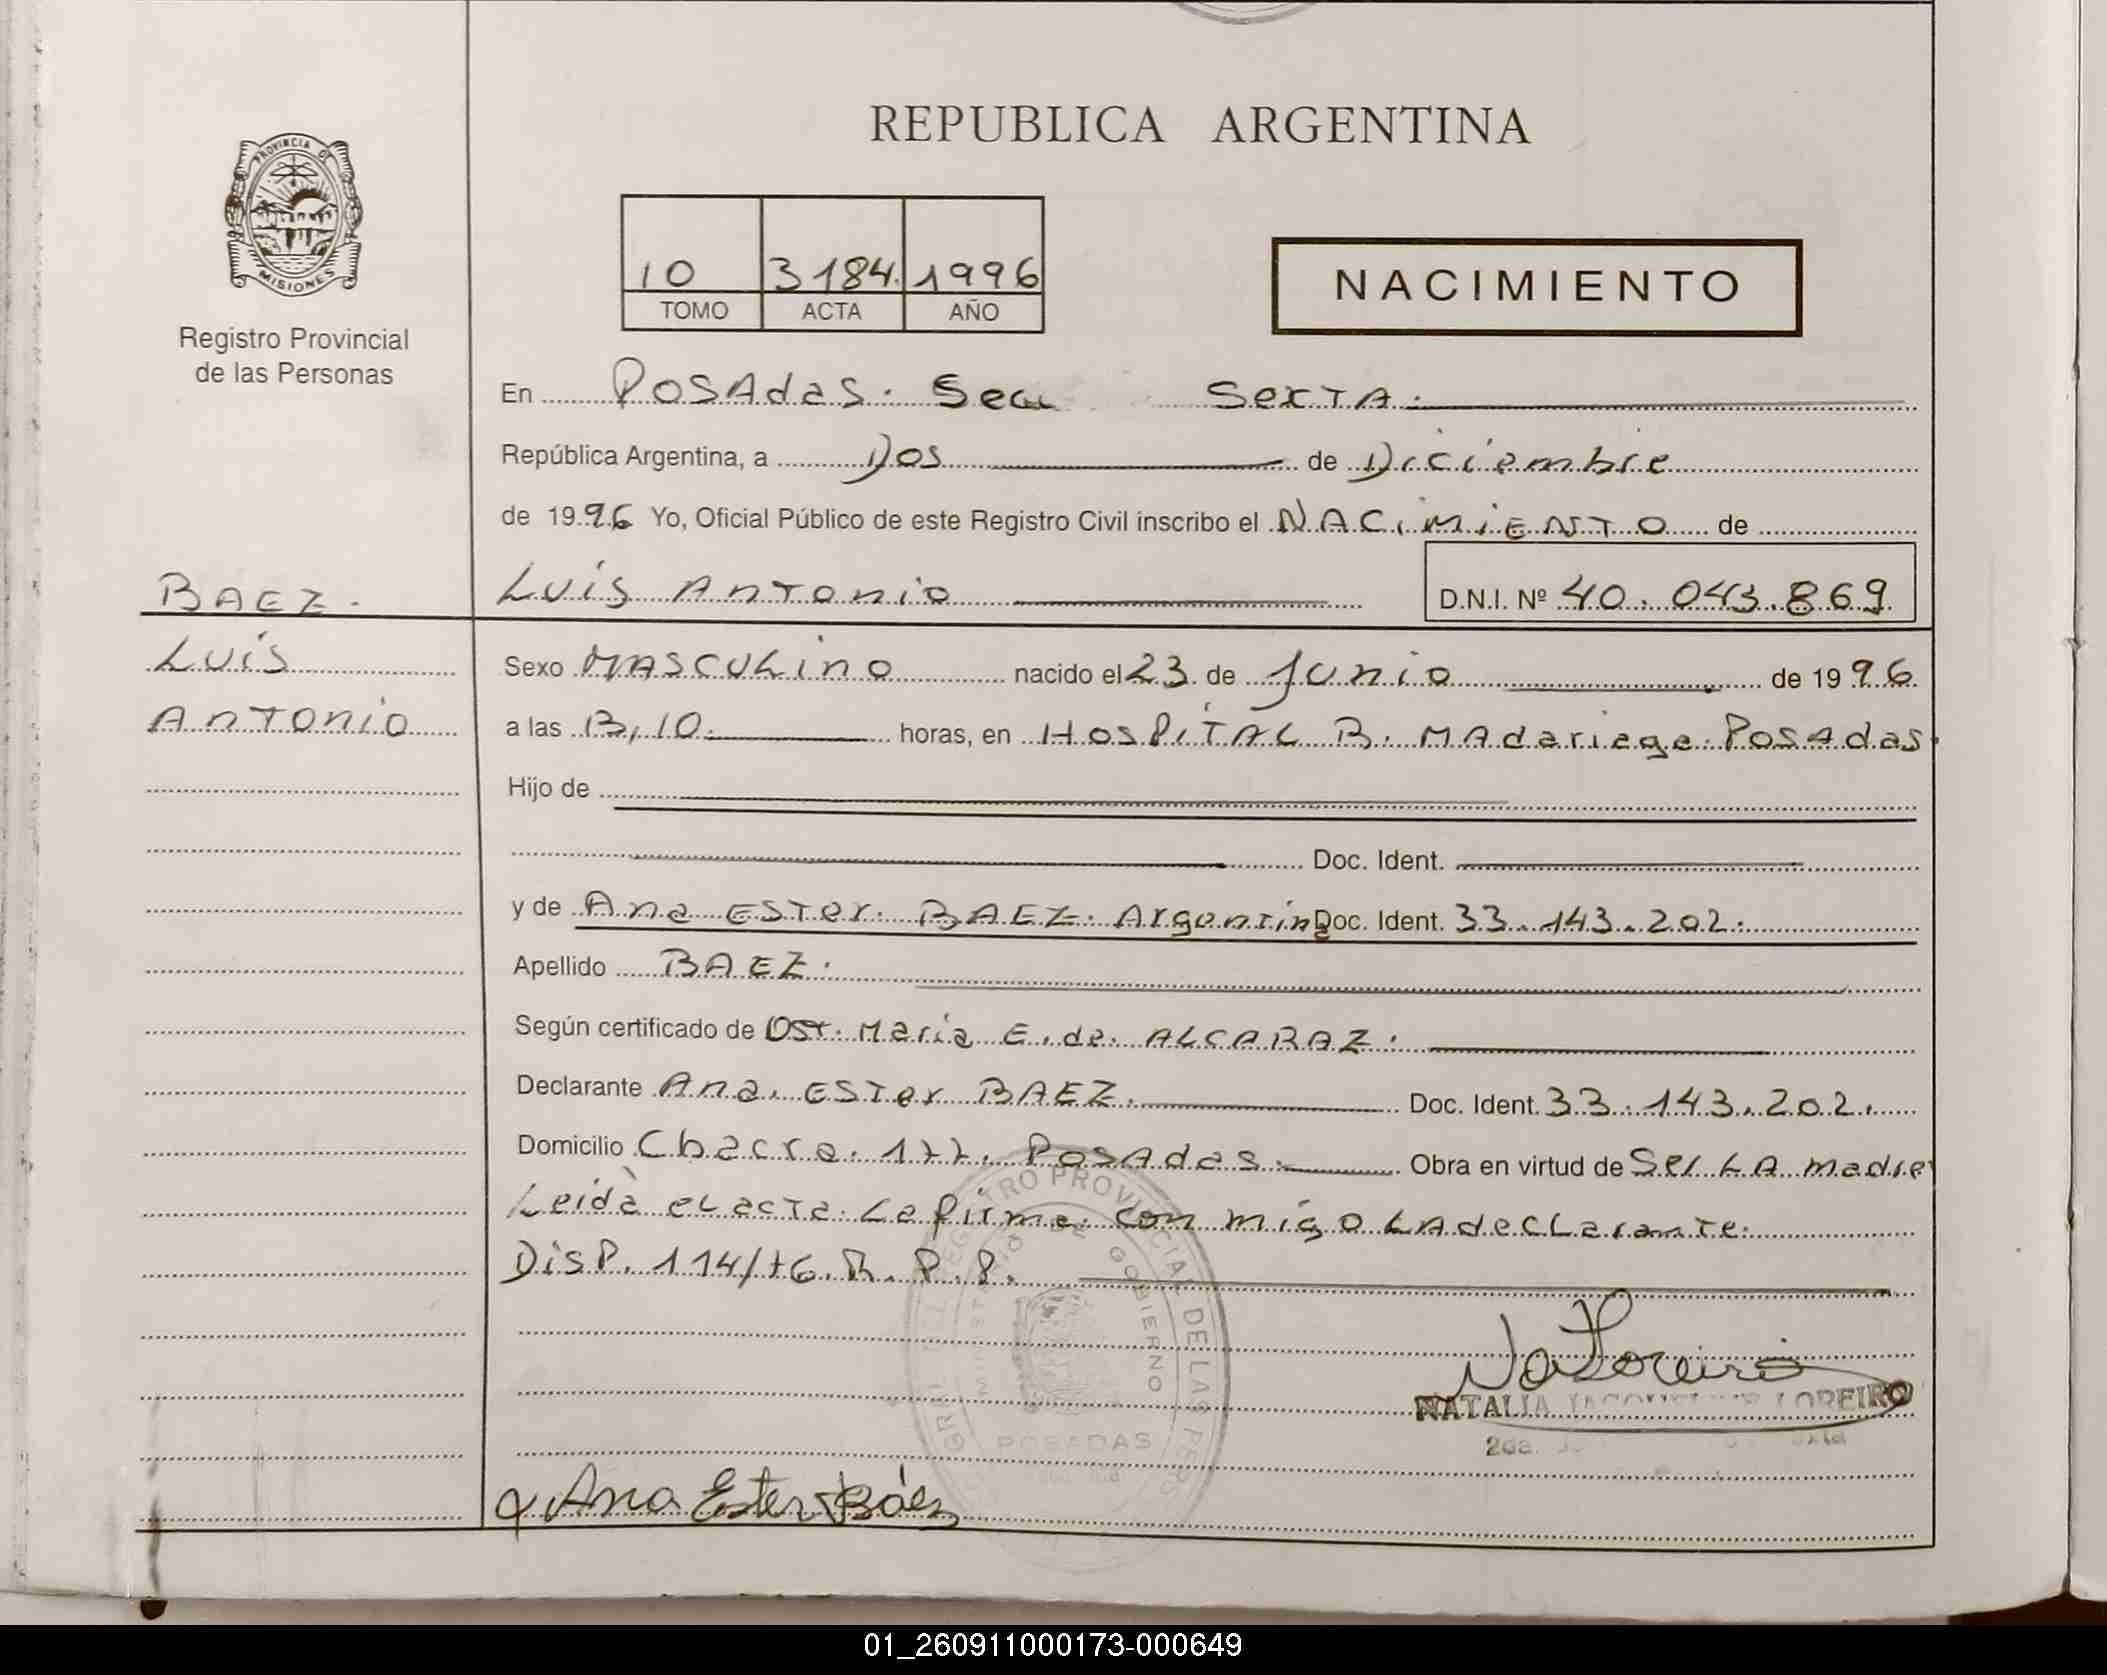 REPUBLICA ARGENTINA
PROVINCIA DE
MISIONES
Registro Provincial
de las Personas
10 3184. 1996
TOMO ACTA AÑO
NACIMIENTO
En Posadas. Sexta.
República Argentina, a Dos de Diciembre
de 1996 Yo, Oficial Público de este Registro Civil inscribo el NACIMIENTO de
BAEZ.
Luis Antonio D.N.I. Nº 40.043.869
Luis
Antonio
Sexo MASCULINO nacido el 23 de Junio de 1996
a las 13,10. horas, en HOSPITAL R. MAdariaga. Posadas.
Hijo de
Doc. Ident.
y de Ana ESTer. BAEZ. Argentina Doc. Ident. 33.143.202.
Apellido BAEZ.
Según certificado de Ost. Maria E. de. ALCARAZ.
Declarante Ana. ESTer BAEZ. Doc. Ident. 33.143.202.
Domicilio Chacra. 177. Posadas. Obra en virtud de Ser LA madre
Leida el acta. La firma. con migo LA declarante.
Disp. 114/76. R. P. P.
REGISTRO PROVINCIAL DE LAS PERS
MINISTERIO DE GOBIERNO
POSADAS
NATALIA LOREIRO
2da.
Ana Ester Báez
01_260911000173-000649